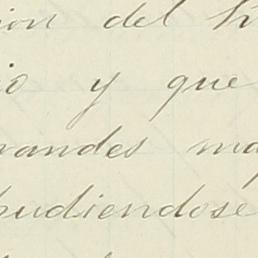 ion del
io y que
randes
pudiendose